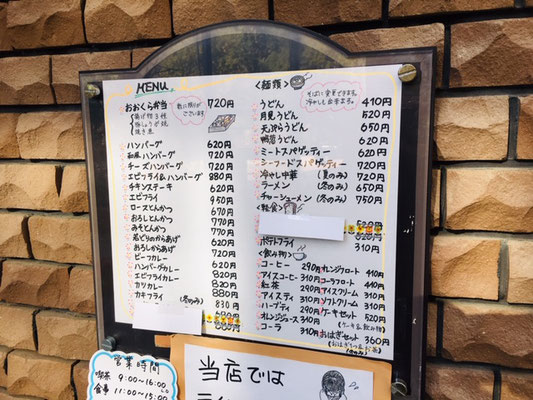 MENU
おおくら弁当 720円
揚げ物3種
豚しょうが焼
焼き魚
数に限りが
ございます
ハンバーグ 620円
和風ハンバーグ 720円
チーズハンバーグ 720円
エビフライ&ハンバーグ 880円
チキンステーキ 620円
エビフライ 950円
ロースとんかつ 670円
おろしとんかつ 770円
みそとんかつ 770円
若どりのからあげ 620円
おろしからあげ 720円
ビーフカレー 620円
ハンバーグカレー 720円
エビフライカレー 820円
カツカレー 820円
カキフライ (冬のみ) 880円
830円
<麺類>
そばに変更できます。
冷やしも出来ます。
うどん 410円
月見うどん 520円
天ぷらうどん 650円
鴨南うどん 620円
ミートスパゲッティー 620円
シーフードスパゲッティー 720円
冷やし中華 (夏のみ) 720円
ラーメン (冬のみ) 650円
チャーシューメン (冬のみ) 750円
<軽食>
520円
620円
ポテトフライ 310円
<飲み物>
コーヒー 290円
アイスコーヒー 310円
紅茶 290円
アイスティ 310円
ハーブティ 290円
オレンジジュース 310円
コーラ 310円
オレンジフロート 440円
コーラフロート 440円
アイスクリーム 310円
ソフトクリーム 310円
ケーキセット 520円
(ケーキ&飲み物)
おはぎセット 360円
(おはぎ1つ&お茶)
営業時間
喫茶 9:00〜16:00
食事 11:00〜15:00
当店では